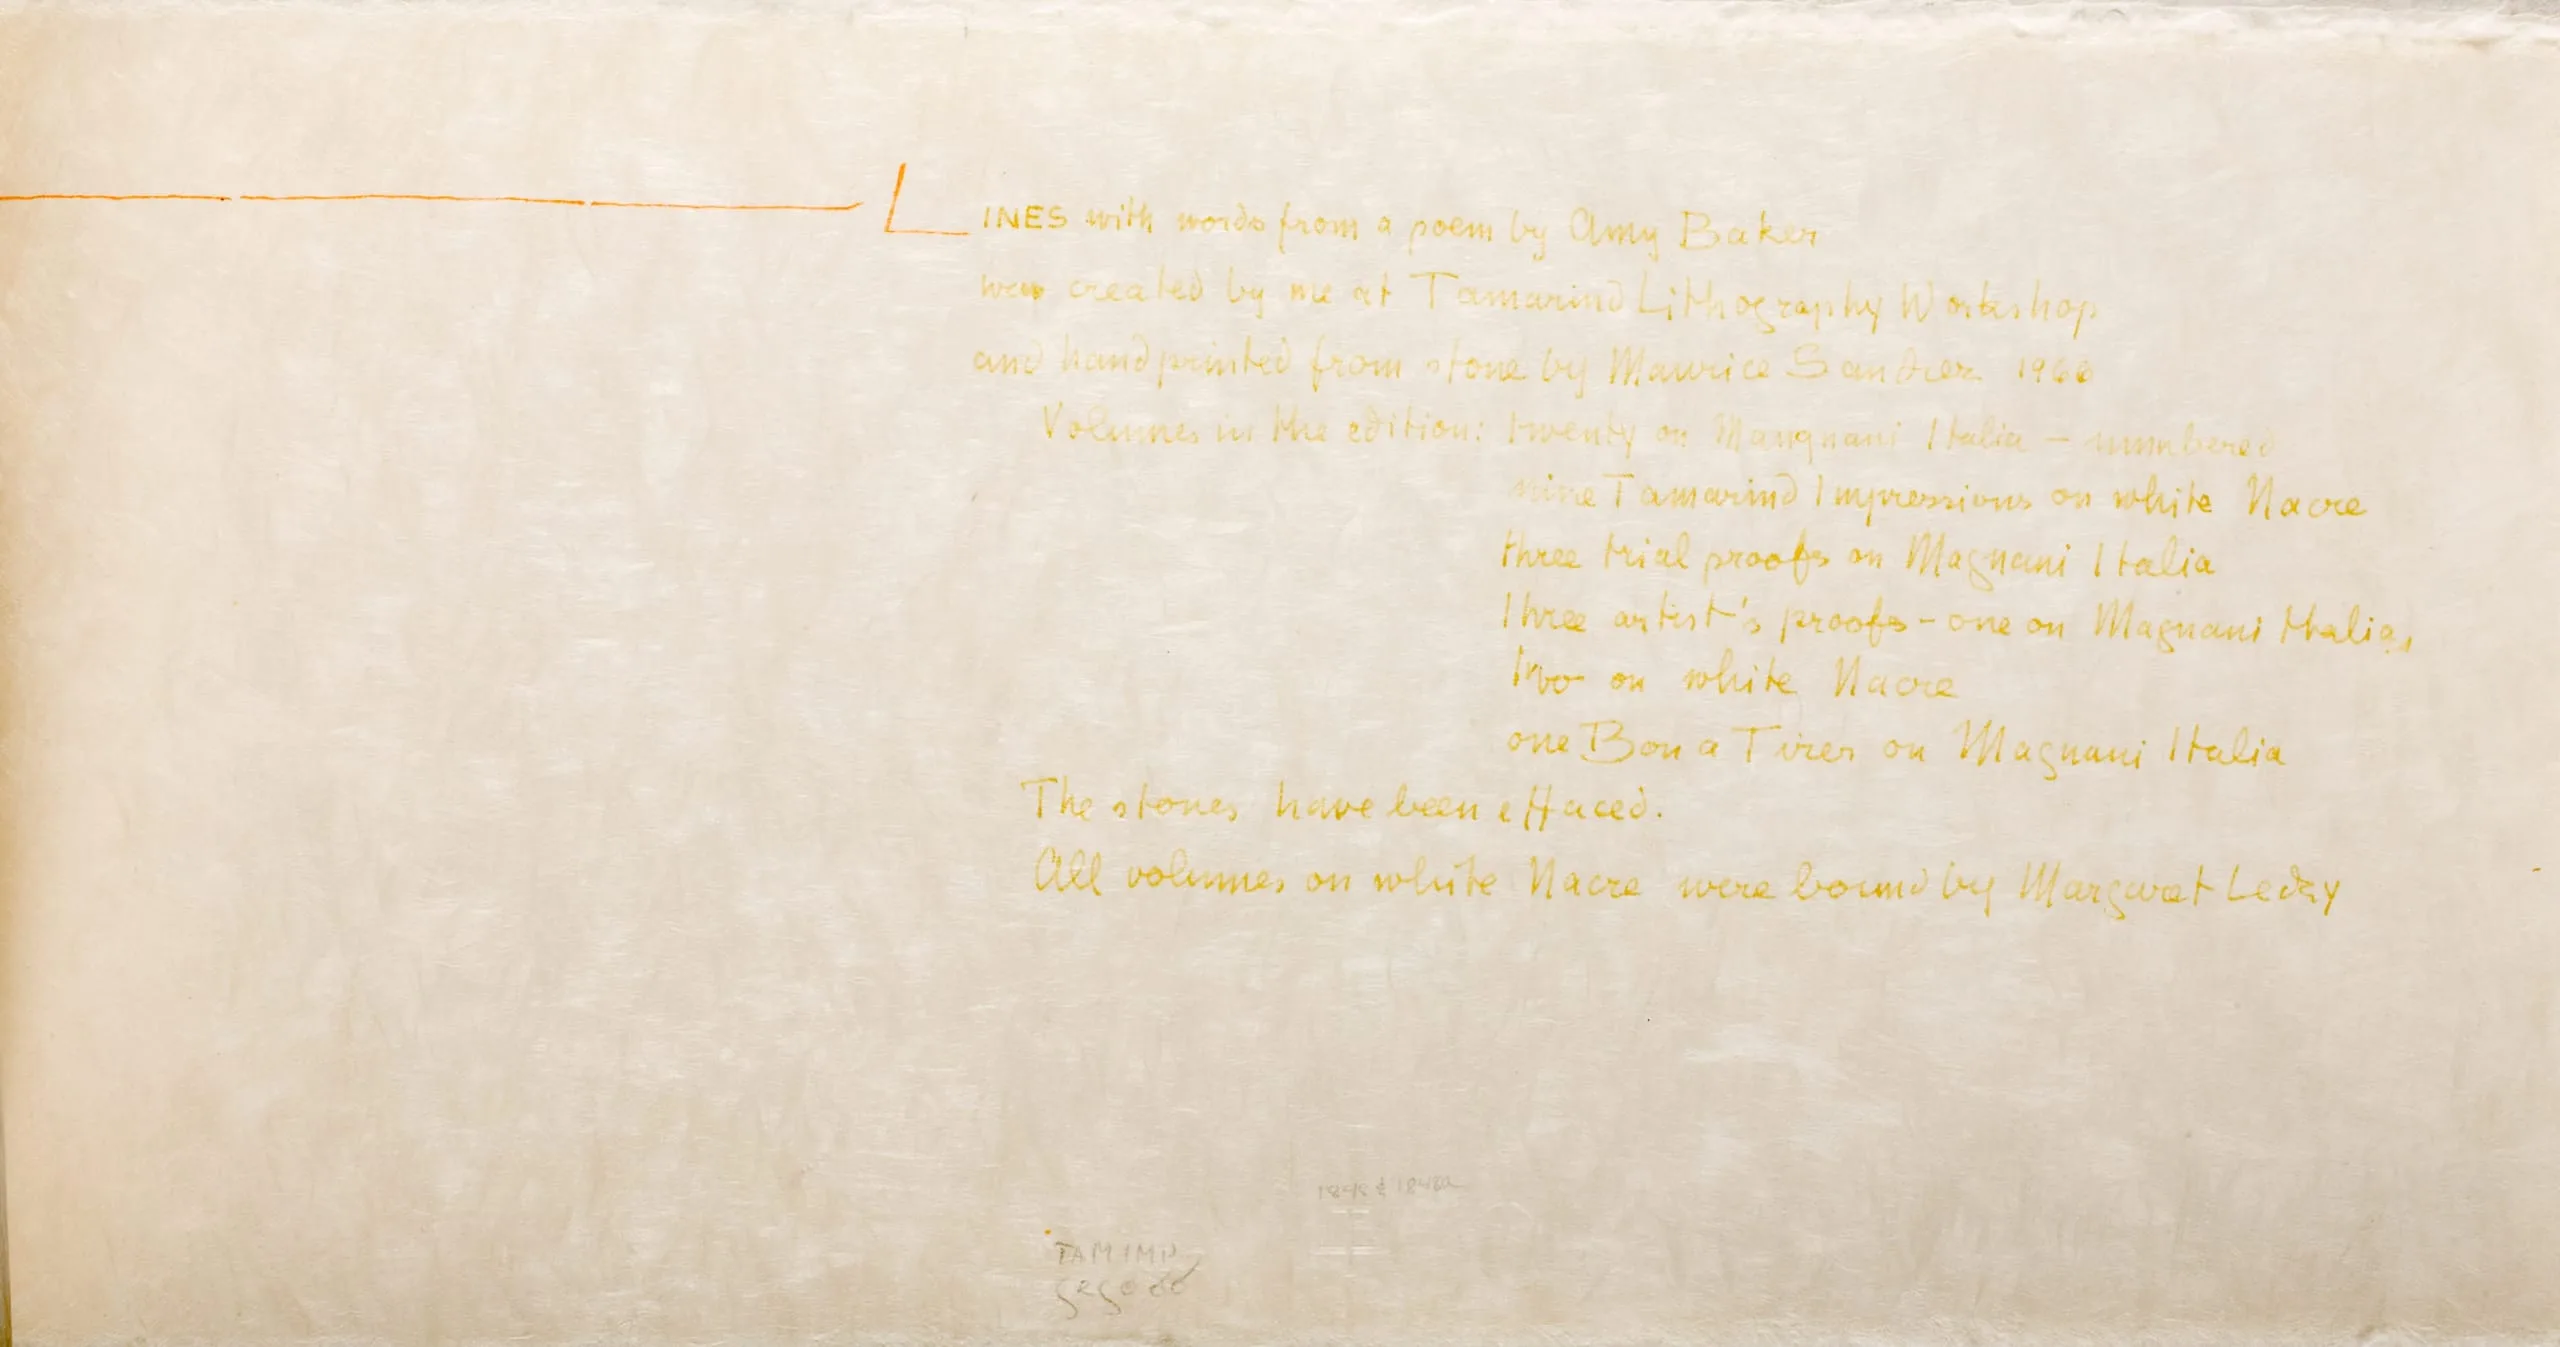 LINES with words from a poem by Amy Baker
were created by me at Tamarind Lithography Workshop
and hand printed from stone by Maurice Sanchez 1966
Volumes in the edition: twenty on Mangnani Italia – numbered
nine Tamarind Impressions on white Nacre
three trial proofs on Magnani Italia
three artist's proofs – one on Magnani Italia,
two on white Nacre
one Bon a Tirer on Magnani Italia
The stones have been effaced.
All volumes on white Nacre were bound by Margaret Lecky
TAM IMP
Gego 66